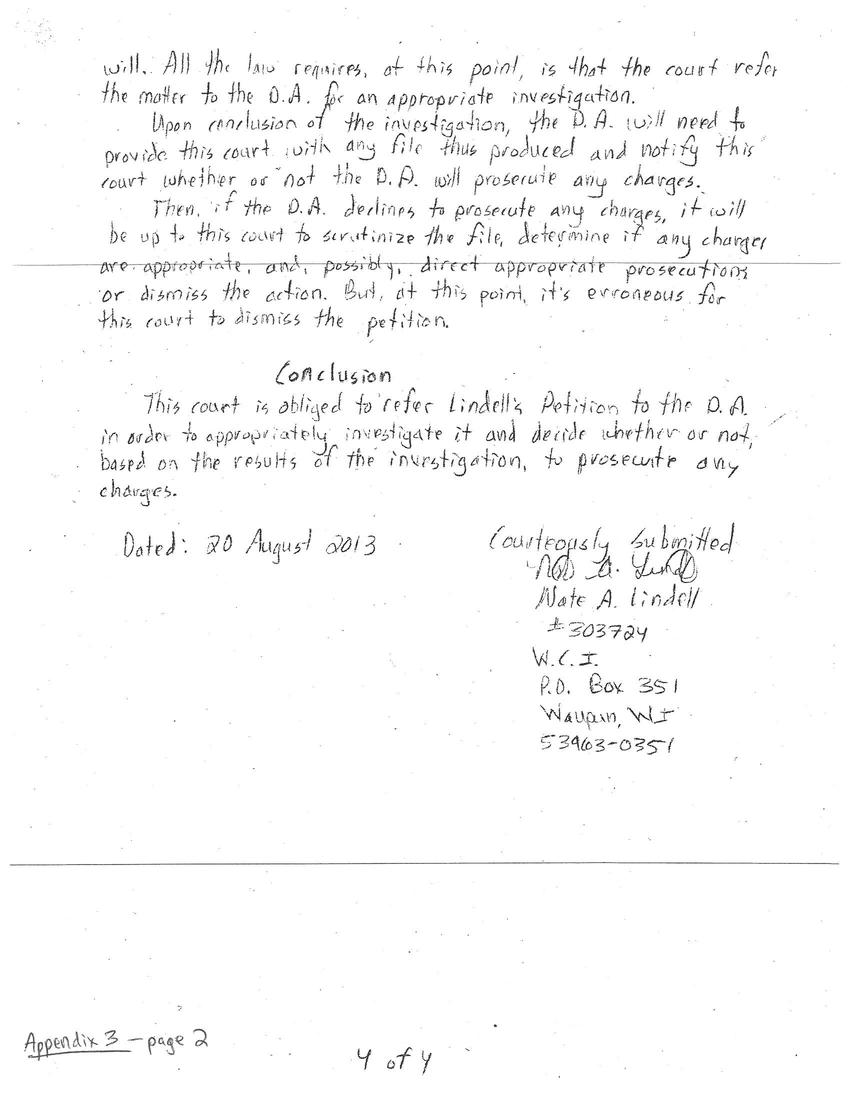 will. All the law requires, at this point, is that the court refer
the matter to the D.A. for an appropriate investigation.
Upon conclusion of the investigation, the D.A. will need to
provide this court with any file thus produced and notify this
court whether or not the D.A. will prosecute any charges.
Then, if the D.A. declines to prosecute any charges, it will
be up to this court to scrutinize the file, determine if any charges
are appropriate, and, possibly, direct appropriate prosecutions
or dismiss the action. But, at this point, it's erroneous for
this court to dismiss the petition.
Conclusion
This court is obliged to refer Lindell's Petition to the D.A.
in order to appropriately investigate it and decide whether or not,
based on the results of the investigation, to prosecute any
charges.
Dated: 20 August 2013
Courteously Submitted
Nate A. Lindell
#303724
W.C.I.
P.O. Box 351
Waupun, WI
53963-0351
Appendix 3 - page 2
4 of 4